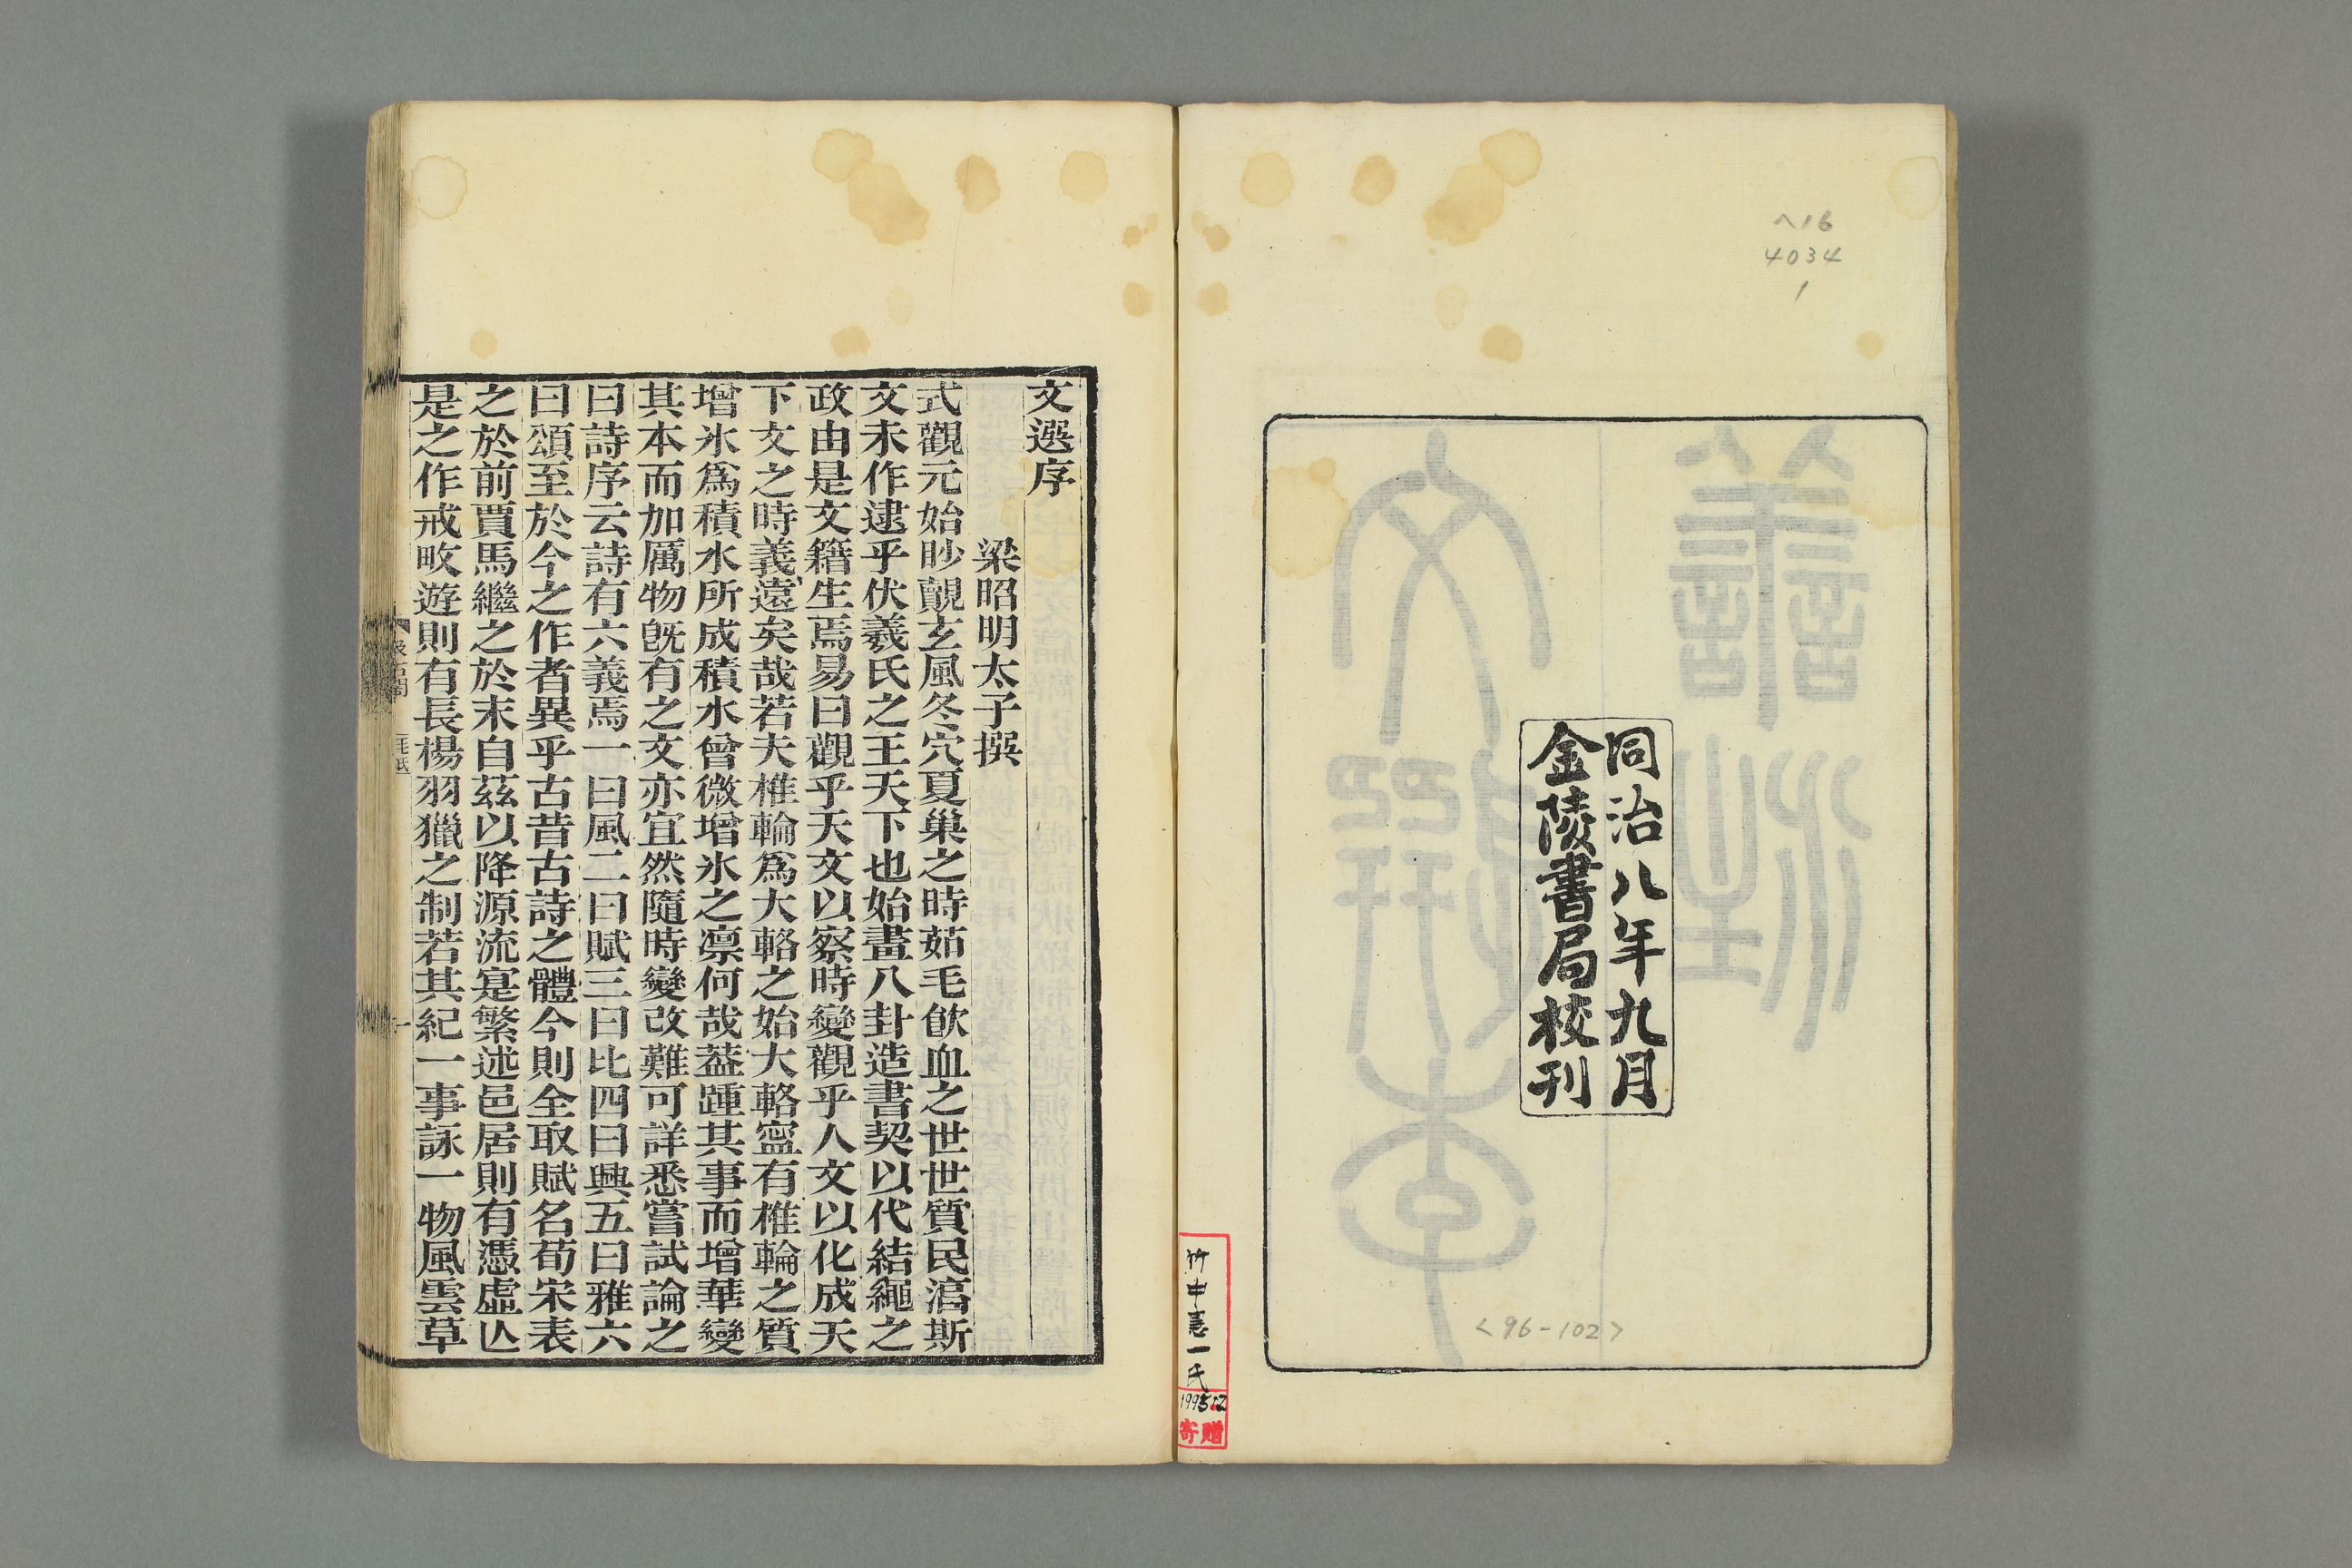 ヘ16
4034
1
同治八年九月
金陵書局校刊
<96-102>
竹中憲一氏
1995.12
寄贈
文選序
梁昭明太子撰
式觀元始眇覿玄風冬穴夏巢之時茹毛飮血之世世質民淳斯
文未作逮乎伏羲氏之王天下也始畫八卦造書契以代結繩之
政由是文籍生焉易曰觀乎天文以察時變觀乎人文以化成天
下文之時義遠矣哉若夫椎輪爲大輅之始大輅寧有椎輪之質
增冰爲積水所成積水曾微增冰之凛何哉蓋踵其事而增華變
其本而加厲物旣有之文亦宜然隨時變改難可詳悉嘗試論之
曰詩序云詩有六義焉一曰風二曰賦三曰比四曰興五曰雅六
曰頌至於今之作者異乎古昔古詩之體今則全取賦名荀宋表
之於前賈馬繼之於末自茲以降源流寔繁述邑居則有憑虛亾
是之作戒畋遊則有長楊羽獵之制若其紀一事詠一物風雲草
一